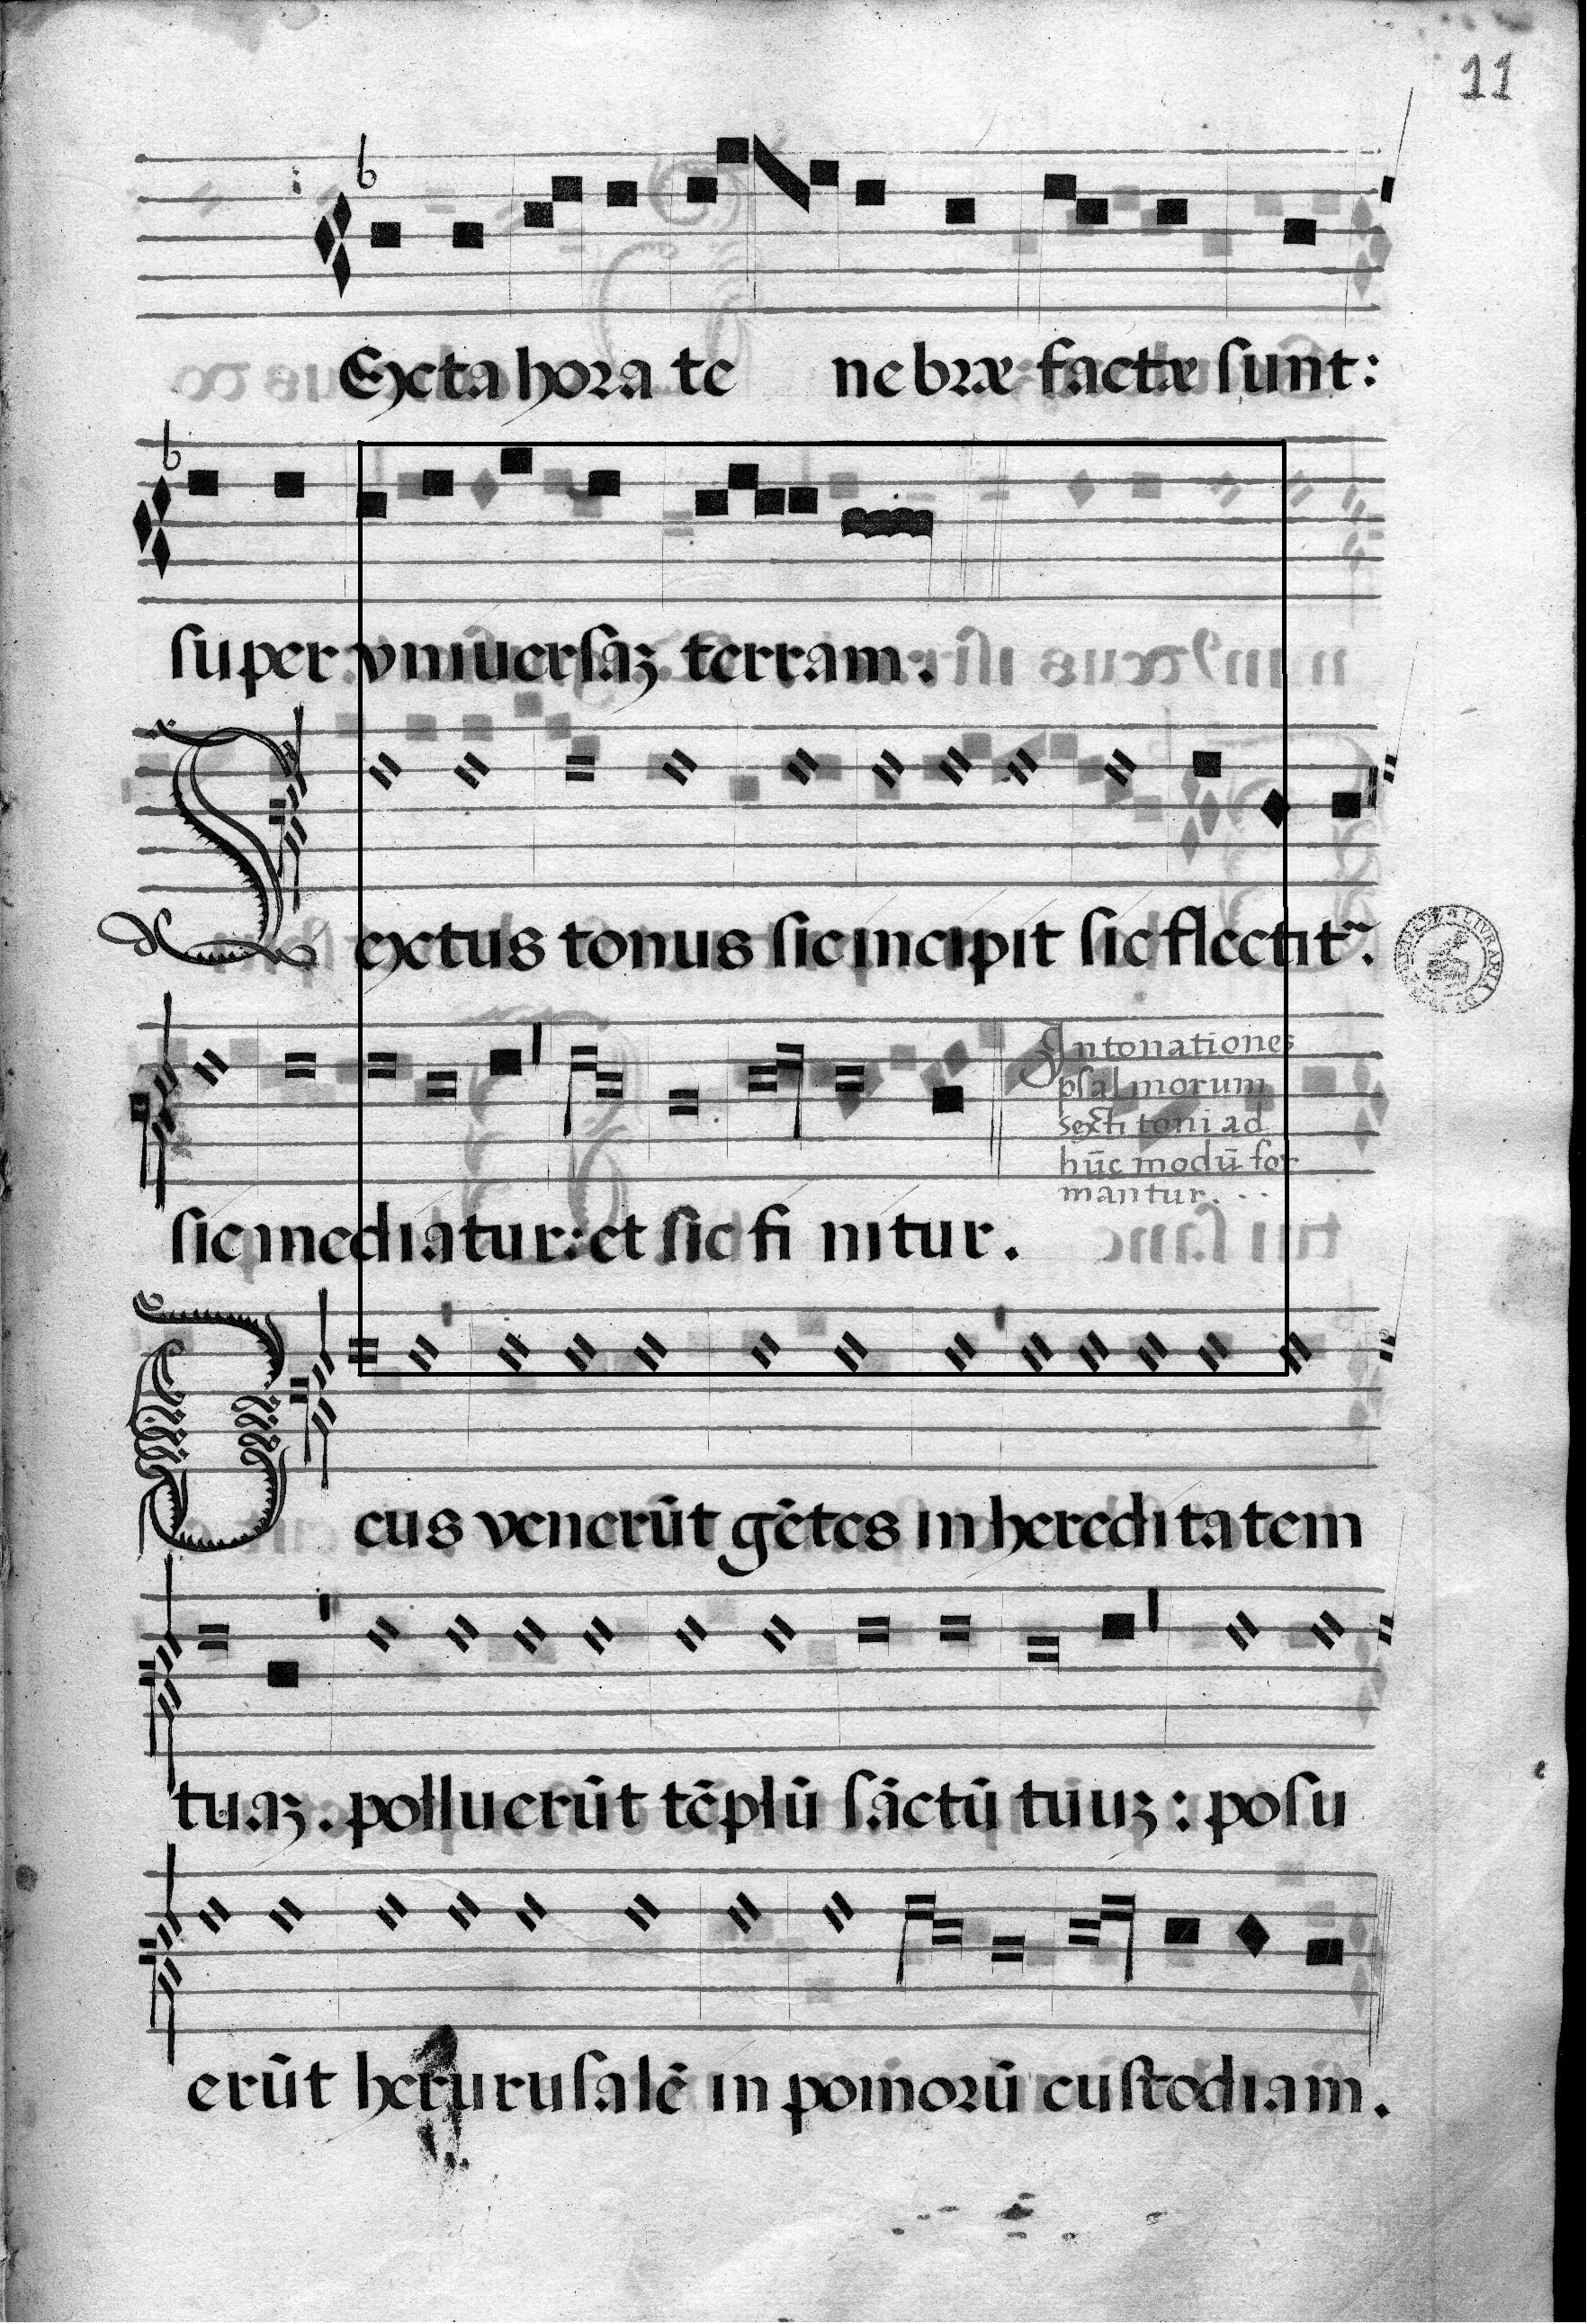 11
Sexta hora te nebræ factæ sunt:
super vniuersaʒ terram:
Sextus tonus sic incipit sic flectit̃.
Intonationes
psalmorum
sexti toni ad
hūc modū for
mantur...
sic mediatur: et sic fi nitur.
Deus venerūt gẽtes in hereditatem
tuaʒ. polluerūt tẽplū sãctū tuuʒ: posu
erūt herurusalẽ in pomorū custodiam.